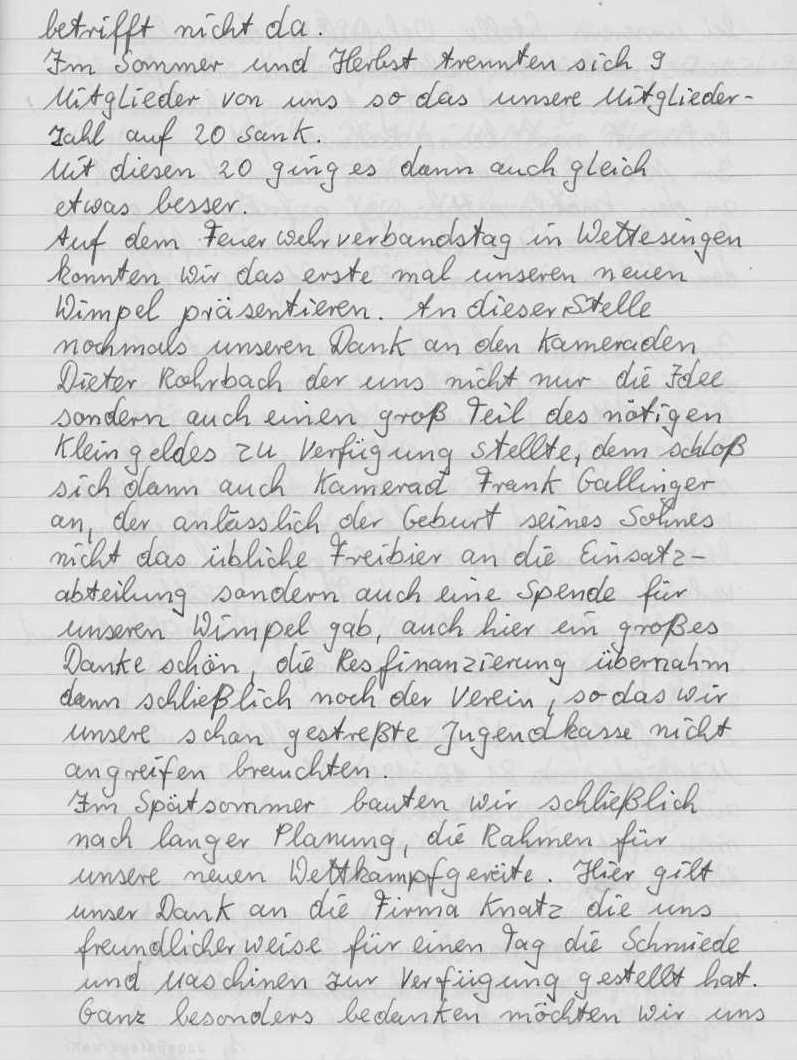 betrifft nicht da.
Im Sommer und Herbst trennten sich 9
Mitglieder von uns so das unsere Mitglieder-
zahl auf 20 sank.
Mit diesen 20 ging es dann auch gleich
etwas besser.
Auf dem Feuerwehrverbandstag in Wettesingen
konnten wir das erste mal unseren neuen
Wimpel präsentieren. An dieser Stelle
nochmals unseren Dank an den Kameraden
Dieter Rohrbach der uns nicht nur die Idee
sondern auch einen groß Teil des nötigen
Kleingeldes zu Verfügung stellte, dem schloß
sich dann auch Kamerad Frank Gallinger
an, der anlässlich der Geburt seines Sohnes
nicht das übliche Freibier an die Einsatz-
abteilung sondern auch eine Spende für
unseren Wimpel gab, auch hier ein großes
Danke schön, die Resfinanzierung übernahm
dann schließlich noch der Verein, so das wir
unsere schon gestreßte Jugendkasse nicht
angreifen brauchten.
Im Spätsommer bauten wir schließlich
nach langer Planung, die Rahmen für
unsere neuen Wettkampfgeräte. Hier gilt
unser Dank an die Firma Knatz die uns
freundlicherweise für einen Tag die Schmiede
und Maschinen zur Verfügung gestellt hat.
Ganz besonders bedanken möchten wir uns